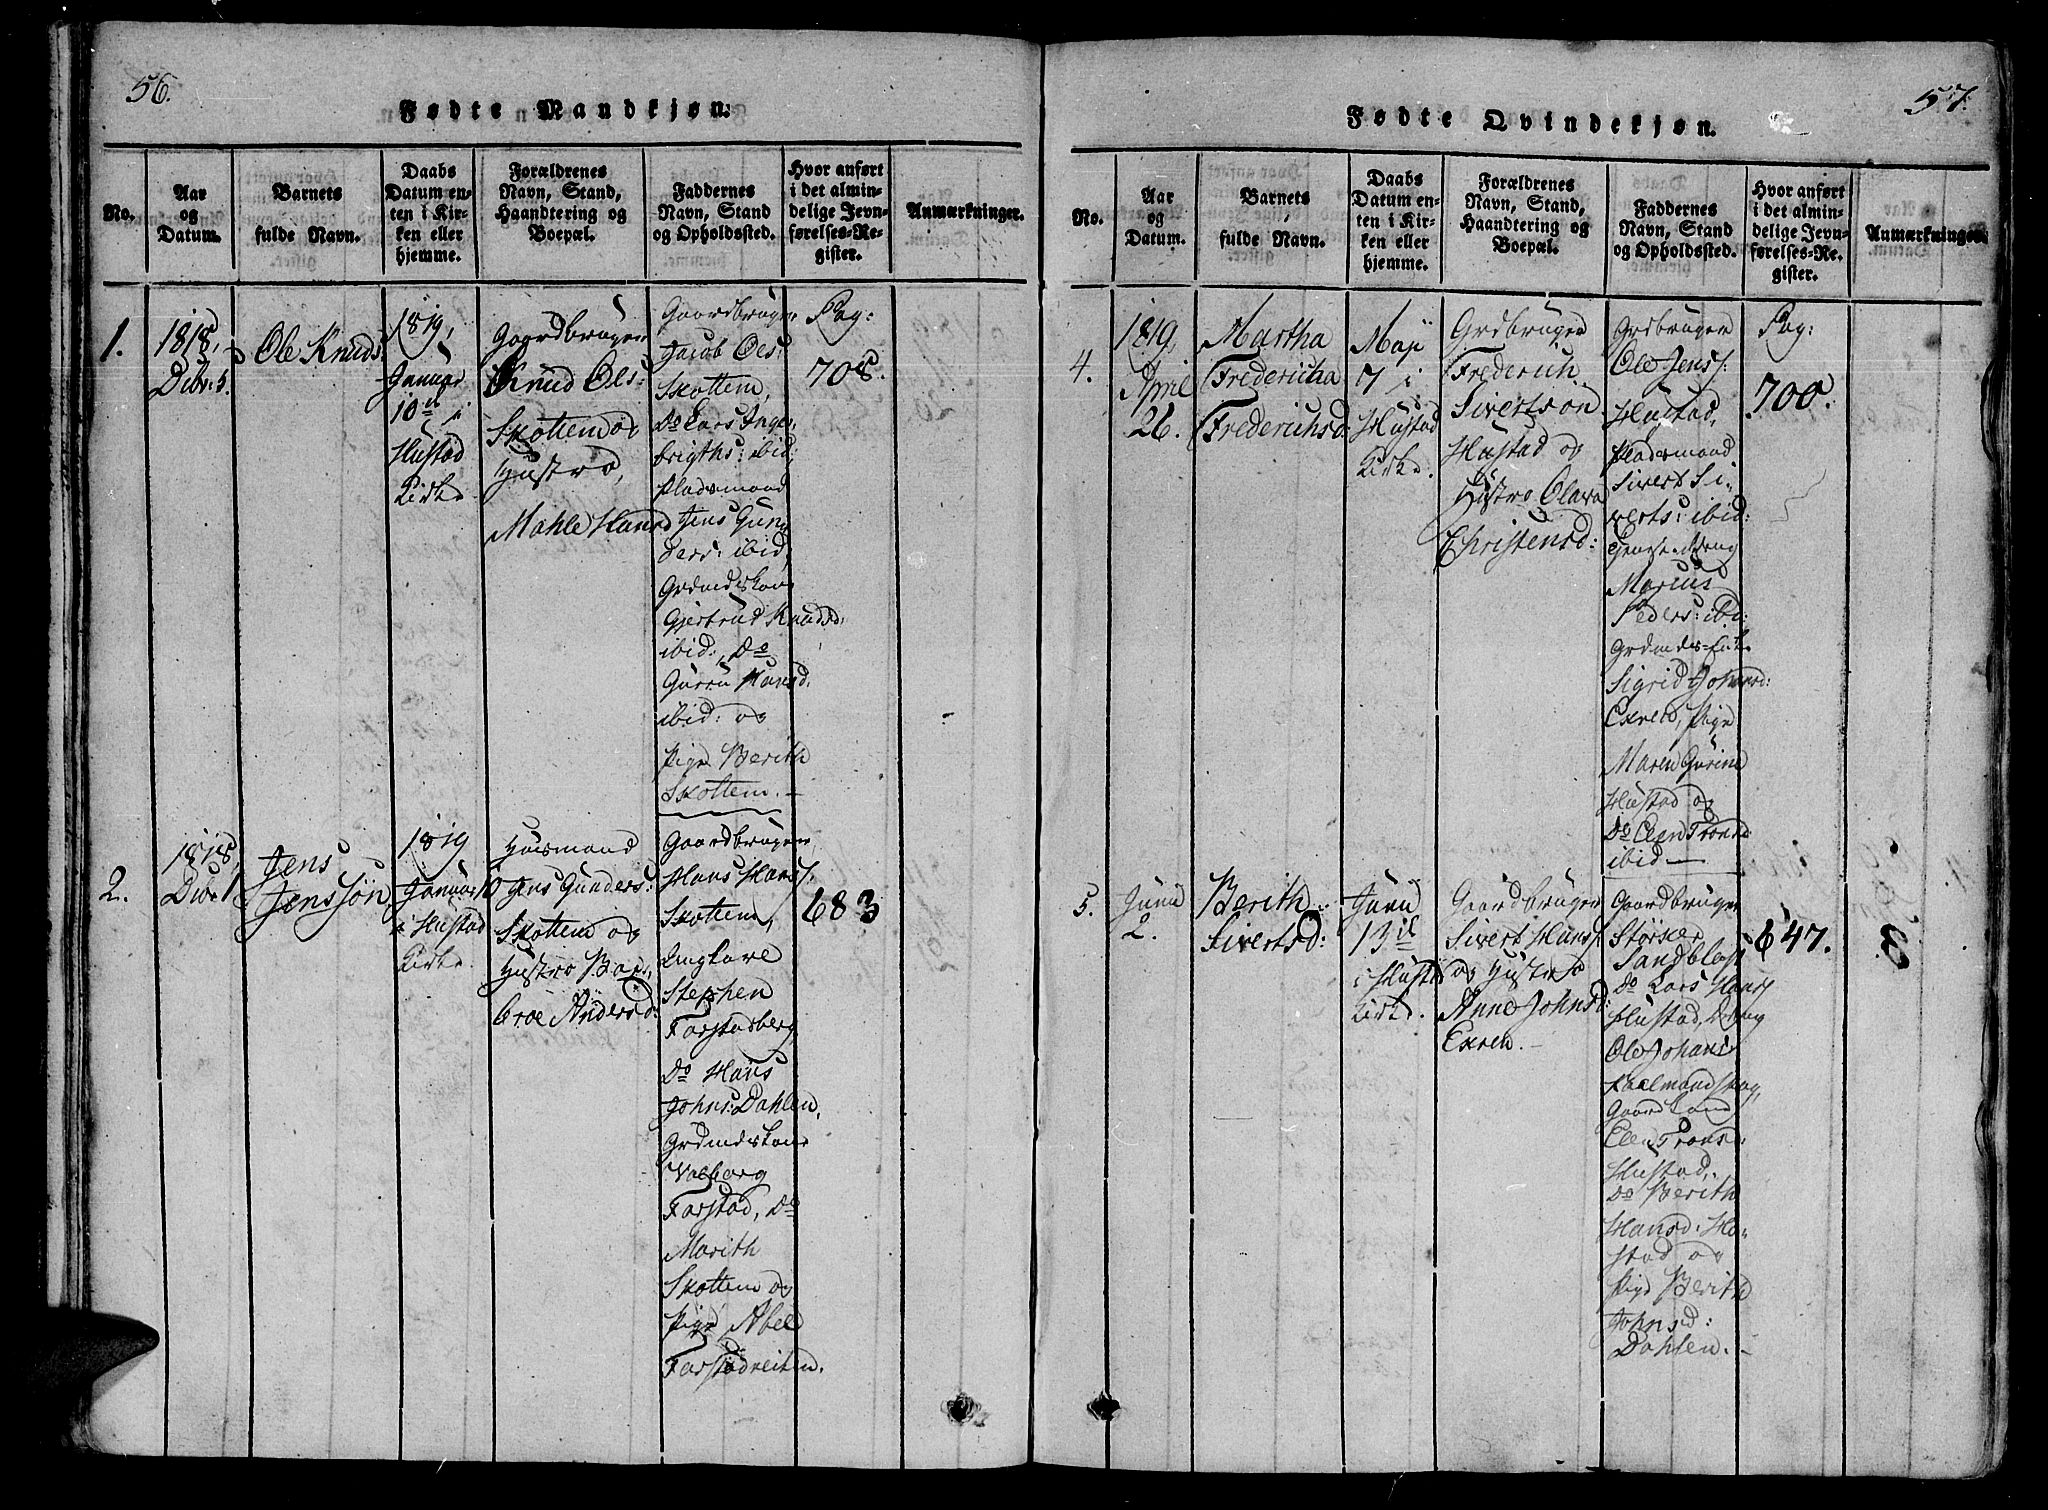 56.
Fødte Mandkjøn.
No.
Aar
og
Datum.
Barnets
fulde Navn.
Daabs
Datum en-
ten i Kir-
ken eller
hjemme.
Forældrenes
Navn, Stand,
Haandtering og
Boepæl.
Faddernes
Navn, Stand
og Opholdssted.
Hvor anført
i det almin-
delige Jevn-
førelses-Re-
gister.
Anmærkninger.
1.
1818,
Ole Knuds:
1819,
Januar
10d i
Hustad
Kirke
Gaardbruger
Knud Ols:
Skottem og
Hustro,
Mahle Hansd
Gaardbruger
Jacob Ols:
Skottem,
Do Lars Inge-
brigths: ibid:
Pladsmand
Jens Gun-
ders: ibid,
Grdmdskone
Gjertrud Knudsd:
ibid:, Do
Gurru Hansd:
ibid: og
Pige Berith
Skottem. –
Pag:
708
2.
1818,
Jens
Jenssøn
1819
Januar 10
i Hustad
Kirke
Huusmand
Jens Gunders:
Skottem og
Hustro
Andersd:
Gaardbruger
Hans Hans:
Skottem,
Ungkarl
Stephen
Farstadberg
Do Hans
Johns: Dahlen,
Grdmdskone
Valborg
Farstad, Do
Marith
Skottem og
Pige Abel
Farstadreiten.
683
57.
Fødte Qvindekjøn.
No.
Aar
og
Datum.
Barnets
fulde Navn.
Daabs
Datum en-
ten i Kir-
ken eller
hjemme.
Forældrenes
Navn, Stand,
Haandtering og
Boepæl.
Faddernes
Navn, Stand
og Opholdssted.
Hvor anført
i det almin-
delige Jevn-
førelses-Re-
gister.
Anmærkninger.
4.
1819,
April
26.
Martha
Fredericha
Frederichsd:
Maji
7 i
Hustad
Kirke.
Grdbruger
Frederich
Sivertson
Hustad og
Hustro Olava
Christensd:
Grdbruger
Ole Jens:
Hustad,
Pladsmand
Sivert Si-
verts: ibid:
Marius
Peders: ibid:
Sigrid Johansd:
Exren, Pige
Maren Gurine
Hustad og
Do Elen Tronsd
ibid —
Pag:
700.
5.
Juni
2.
Berith
Sivertsd:
Juni
13d
i Hustad
Kirke.
Gaardbruger
Sivert Hans:
og Hustro
Anne Johnsd:
Exren. –
Gaardbruger
Størker
Sandblast
Do Lars Hans:
Hustad, Dreng
Ole Johans:
Gaardkone
Elen Tronsd:
Hustad,
Do Berith
Hansd: Hu-
stad og
Pige Berith
Johnsd:
Dahlen. –
647.